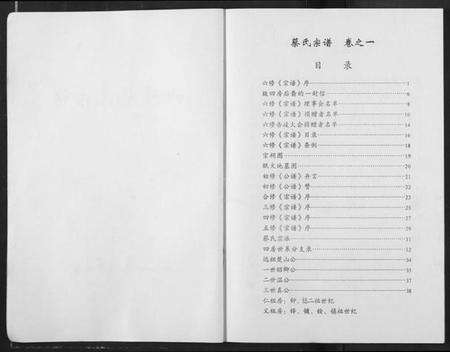 蔡氏宗谱 卷之一
目 录
六修《宗谱》序 1
致四房后裔的一封信 6
六修《宗谱》理事会名单 8
六修《宗谱》捐赠者名单
六修 大会捐赠者名单 14
六修《宗谱》目录 16
六修《宗谱》条例 18
宗祠图 19
眠犬地墓图 20
始修《公谱》弁言 21
初修《公谱》赞 22
合修《宗谱》序 23
三修《宗谱》序 25
四修《宗谱》序 27
五修《宗谱》序 29
蔡氏宗派 31
四房世系分支录 32
远祖楚山公 34
一世绍卿公 35
二世温公 37
三世真公 38
仁祖房：钟、 二祖世纪
义祖房：锋、 祖世纪